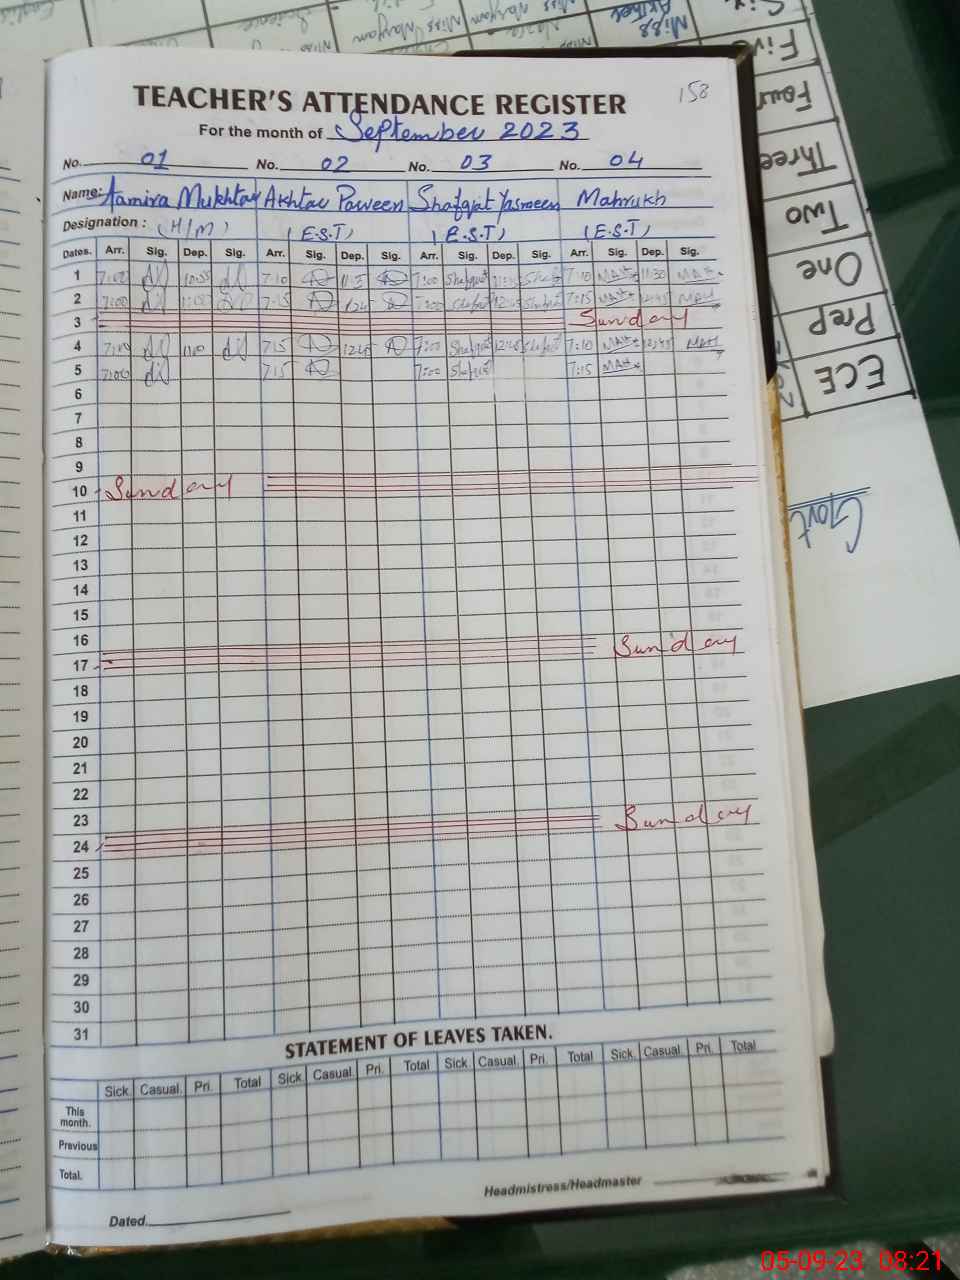 158
TEACHER'S ATTENDANCE REGISTER
For the month of September 2023
No. 01 No. 02 No. 03 No. 04
Name: Aamira Mukhtar Akhtar Parveen Shafqat Yasmeen Mahrukh
Designation : (H/M) (E.S.T) (E.S.T) (E.S.T)
Dates. Arr. Sig. Dep. Sig. Arr. Sig. Dep. Sig. Arr. Sig. Dep. Sig. Arr. Sig. Dep. Sig.
1 7:00 7:10 7:00 Shafqat 7:10 MAH 11:30 MAH
2 7:00 7:15 7:00 Shafqat 12:45 Shafqat 7:15 MAH 12:45 MAH
3 Sunday
4 7:00 7:15 12:45 7:00 Shafqat 12:45 Shafqat 7:10 MAH 12:45 MAH
5 7:00 7:15 7:00 Shafqat 7:15 MAH
6
7
8
9
10 Sunday
11
12
13
14
15
16 Sunday
17
18
19
20
21
22
23 Sunday
24
25
26
27
28
29
30
31
STATEMENT OF LEAVES TAKEN.
Sick Casual. Pri. Total Sick Casual. Pri. Total Sick Casual. Pri. Total Sick Casual. Pri. Total
This month.
Previous
Total.
Headmistress/Headmaster
Dated.
Miss Maryam
Miss Maryam
Miss
Six
Five
Four
Three
Two
One
Prep
ECE
Govt
05-09-23 08:21